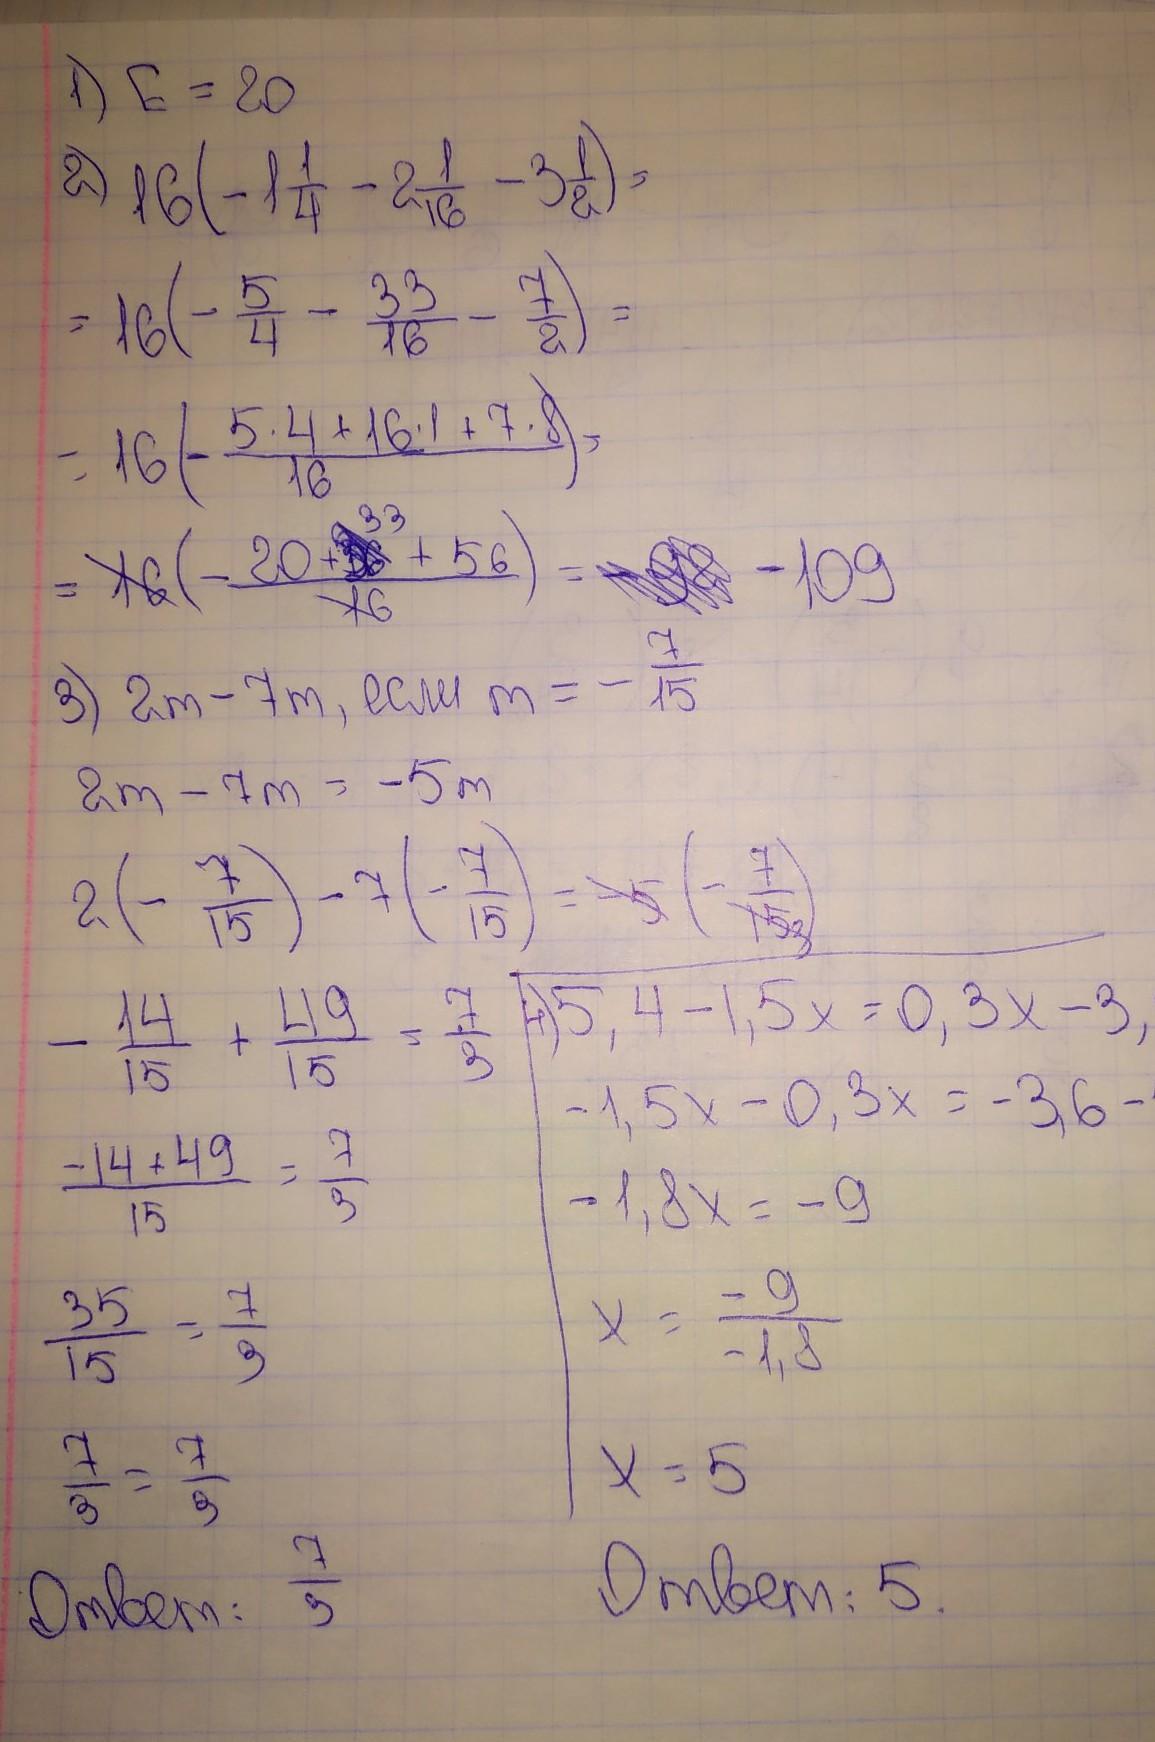 1) E = 20
2) 16(-1 1/4 - 2 1/16 - 3 1/2) =
= 16(- 5/4 - 33/16 - 7/2) =
= 16(- (5·4+16·1+7·8)/16) =
= 16(- (20+33+56)/16) = -109
3) 2m - 7m, если m = - 7/15
2m - 7m = -5m
2(- 7/15) - 7(- 7/15) = -5(- 7/15 3)
- 14/15 + 49/15 = 7/3
(-14+49)/15 = 7/3
35/15 = 7/3
7/3 = 7/3
Ответ: 7/3
4) 5,4 - 1,5x = 0,3x - 3,
-1,5x - 0,3x = -3,6 -
-1,8x = -9
x = -9/-1,8
x = 5
Ответ: 5.